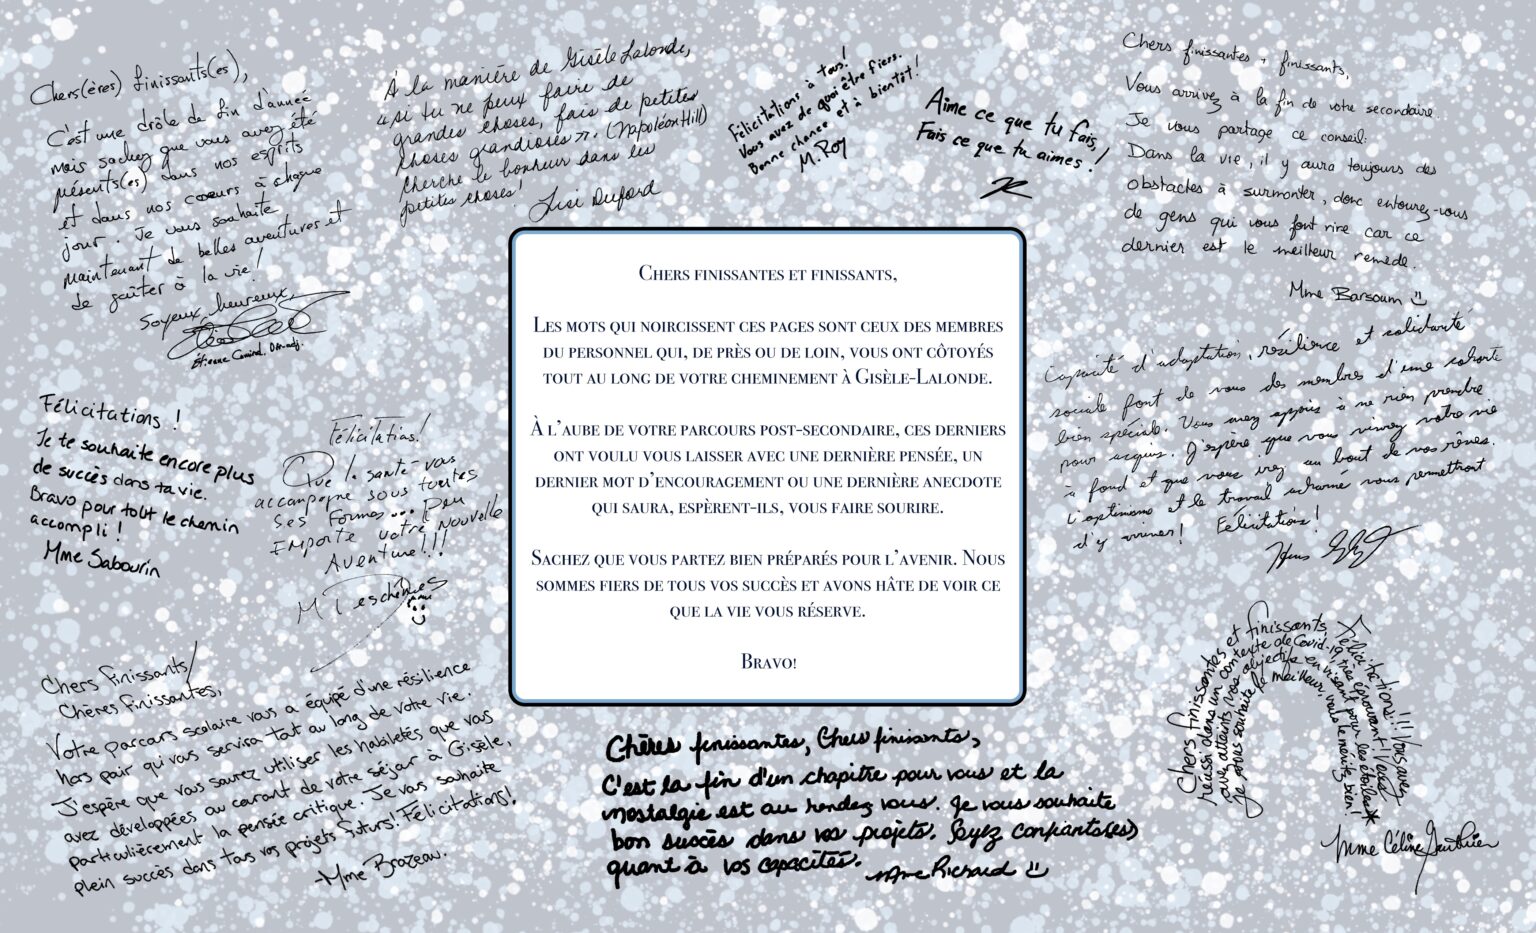 Chers(ères) finissants(es),
C'est une drôle de fin d'année
mais sachez que vous avez été
présents(es) dans nos esprits
et dans nos coeurs à chaque
jour. Je vous souhaite
maintenant de belles aventures et
de goûter à la vie!
Soyez heureux,
Étienne
À la manière de Gisèle Lalonde,
« si tu ne peux faire de
grandes choses, fais de petites
choses grandioses ». (Napoléon Hill)
Cherche le bonheur dans les
petites choses!
Lisi Duford
Félicitations à tous!
Vous avez de quoi être fiers.
Bonne chance et à bientôt!
M. Roy
Aime ce que tu fais,
Fais ce que tu aimes!
Chers finissantes + finissants,
Vous arrivez à la fin de votre secondaire.
Je vous partage ce conseil:
Dans la vie, il y aura toujours des
obstacles à surmonter, donc entourez-vous
de gens qui vous font rire car ce
dernier est le meilleur remède.
Mme Barsoum
Chers finissantes et finissants,
Les mots qui noircissent ces pages sont ceux des membres
du personnel qui, de près ou de loin, vous ont côtoyés
tout au long de votre cheminement à Gisèle-Lalonde.
À l'aube de votre parcours post-secondaire, ces derniers
ont voulu vous laisser avec une dernière pensée, un
dernier mot d'encouragement ou une dernière anecdote
qui saura, espèrent-ils, vous faire sourire.
Sachez que vous partez bien préparés pour l'avenir. Nous
sommes fiers de tous vos succès et avons hâte de voir ce
que la vie vous réserve.
Bravo!
Capacité d'adaptation, résilience et solidarité
sociale font de vous des membres d'une cohorte
bien spéciale. Vous avez appris à ne rien prendre
pour acquis. J'espère que vous vivrez votre vie
à fond et que vous irez au bout de vos rêves.
L'optimisme et le travail acharné vous permettront
d'y arriver! Félicitations!
Félicitations !
Je te souhaite encore plus
de succès dans ta vie.
Bravo pour tout le chemin
accompli !
Mme Sabourin
Félicitations!
Que la santé vous
accompagne sous toutes
ses formes... Peu
Importe votre nouvelle
Aventure!!!
M Deschênes
Chers finissants/
Chères finissantes,
Votre parcours scolaire vous a équipé d'une résilience
hors pair qui vous servira tout au long de votre vie.
J'espère que vous saurez utiliser les habiletés que vous
avez développées au courant de votre séjour à Gisèle,
particulièrement la pensée critique. Je vous souhaite
plein succès dans tous vos projets futurs! Félicitations!
-Mme Brazeau.
Chères finissantes, Chers finissants,
C'est la fin d'un chapitre pour vous et la
nostalgie est au rendez vous. Je vous souhaite
bon succès dans vos projets. Soyez confiants(es)
quant à vos capacités.
Mme Richard
Chers finissantes et finissants, Félicitations!!! Vous avez
réussi dans un contexte de Covid-19 très éprouvant! Vous
avez atteints vos objectifs en visant pour les étoiles
Je vous souhaite le meilleur. vous le mérite bien!
Mme Céline Gauthier